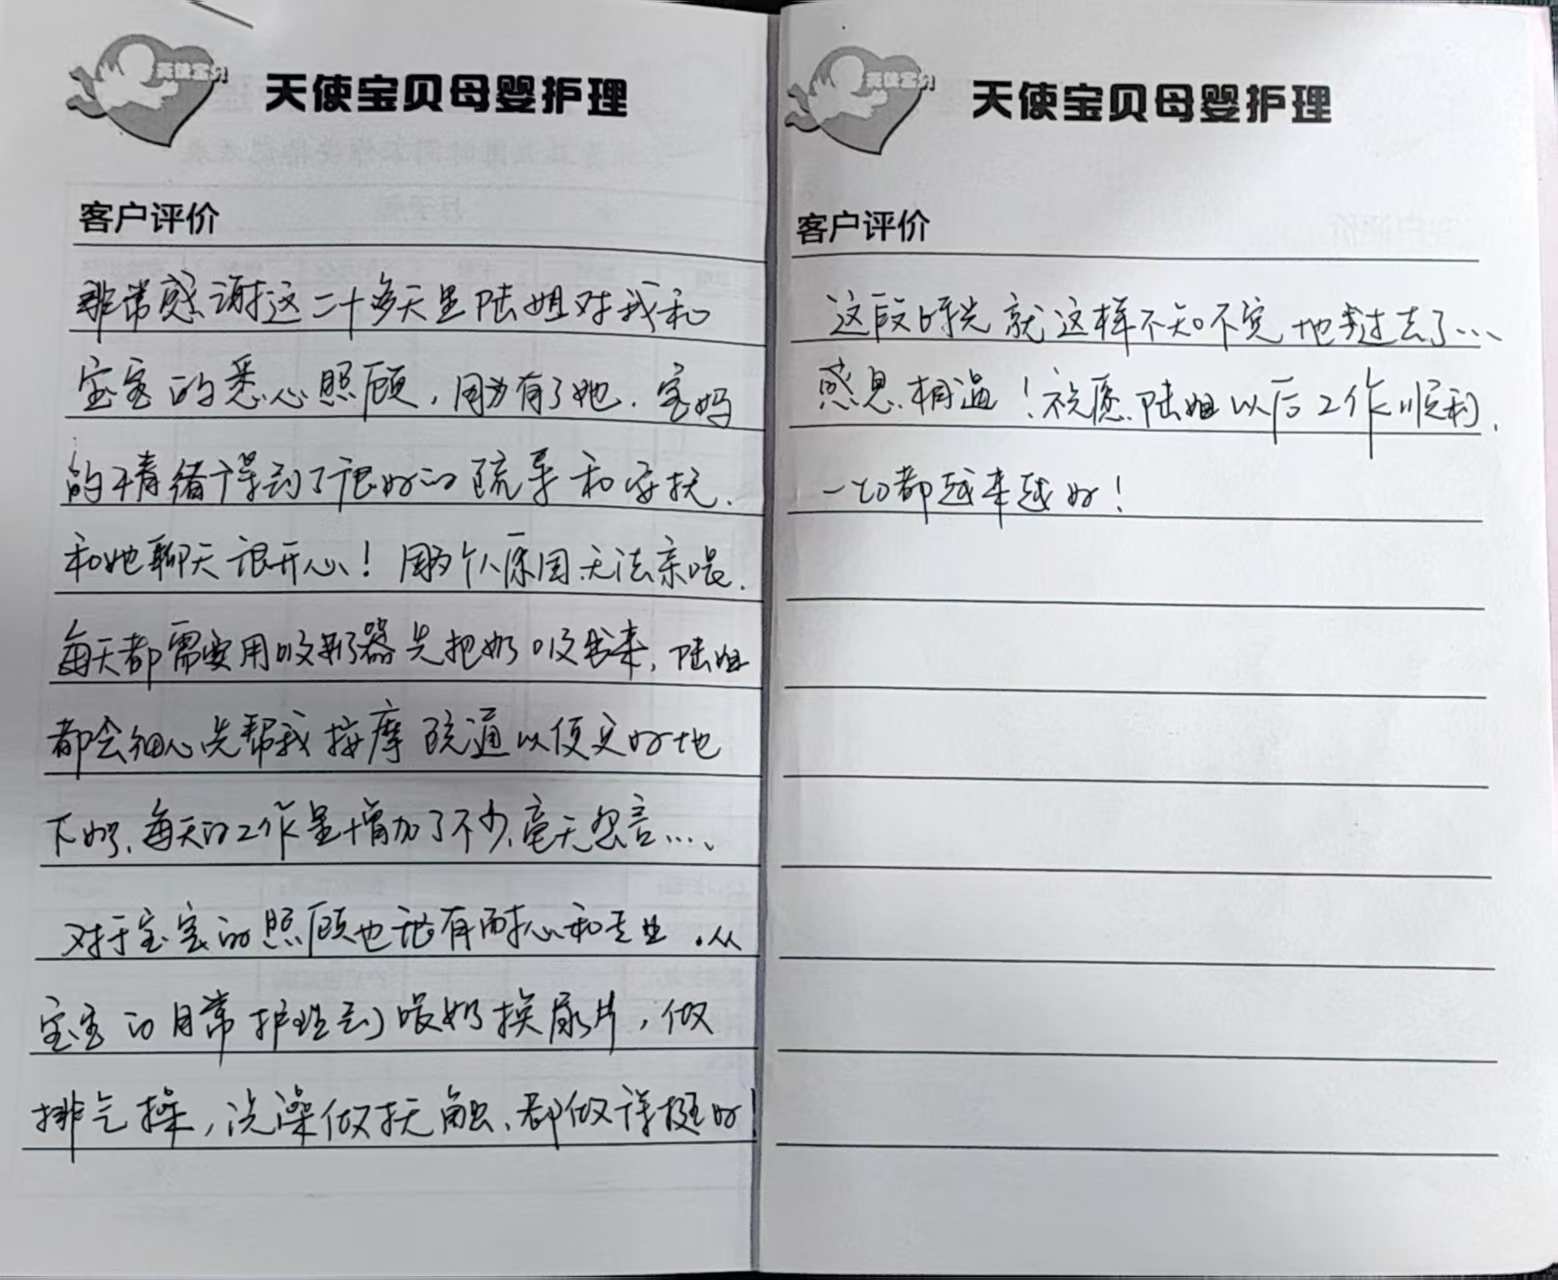 天使宝贝
天使宝贝母婴护理
客户评价
非常感谢这二十多天里陆姐对我和
宝宝的悉心照顾，因为有了她，宝妈
的情绪得到了很好的疏导和安抚，
和她聊天很开心！因为个人原因无法亲喂，
每天都需要用吸奶器先把奶吸出来，陆姐
都会细心先帮我按摩疏通以便更好地
下奶，每天的工作量增加了不少，毫无怨言…、
对于宝宝的照顾也很有耐心和专业，从
宝宝的日常护理到喂奶换尿片，做
排气操，洗澡做抚触，都做得挺好！
天使宝贝
天使宝贝母婴护理
客户评价
这段时光就这样不知不觉地过去了…
感恩相遇！祝愿陆姐以后工作顺利，
一切都越来越好！